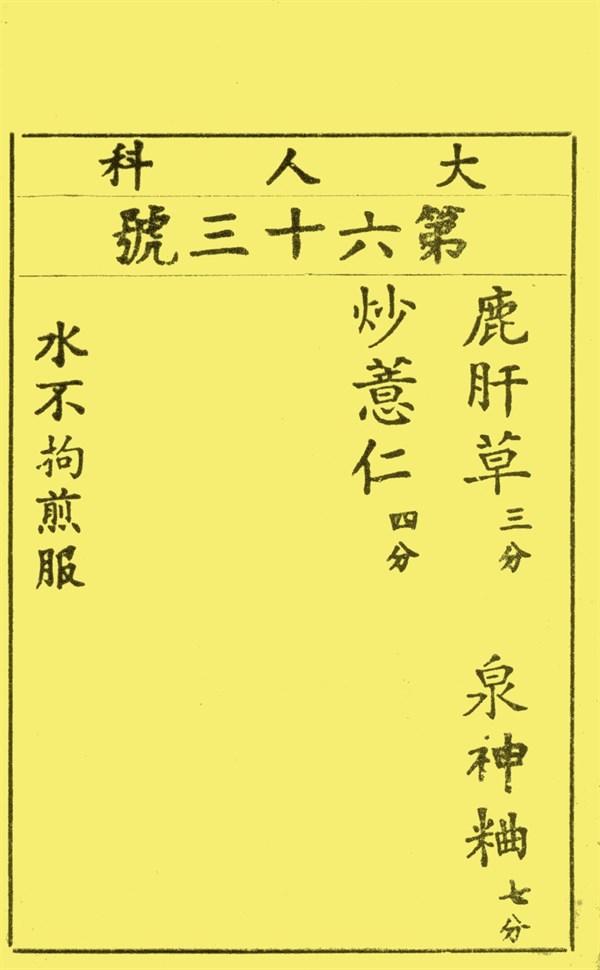 大人科
第六十三號
鹿肝草三分 泉神粬七分
炒薏仁四分
水不拘煎服